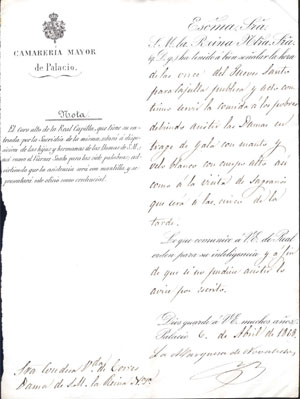 CAMARERÍA MAYOR
de Palacio.
Nota
El coro alto de la Real Capilla, que tiene su en-
trada por la Sacristía de la misma, estará á dispo-
sición de las hijas y hermanas de las Damas de S.M.
así como el Viernes Santo para las siete palabras; ad-
virtiendo que la asistencia será con mantilla, y se
presentará este oficio como credencial.
Sra Condesa Vda de Corres
Dama de S.M. la Reina N.S.
Excma Sra
S.M. la Reina Ntra Sra
q D g ha tenido á bien señalar la hora
de las once del Jueves Santo
para la pública y acto con-
tinuo servir la comida á los pobres
debiendo asistir las Damas en
trage de Gala con manto y
velo blanco con cuerpo alto así
como á la visita de Sagrarios
que será á las cinco de la
tarde.
Lo que comunico á V.E. de Real
orden para su inteligencia y á fin
de que si no pudiera asistir lo
avise por escrito.
Dios guarde á V.E. muchos años
Palacio 6 de Abril de 1868.
La Marquesa de Novaliches